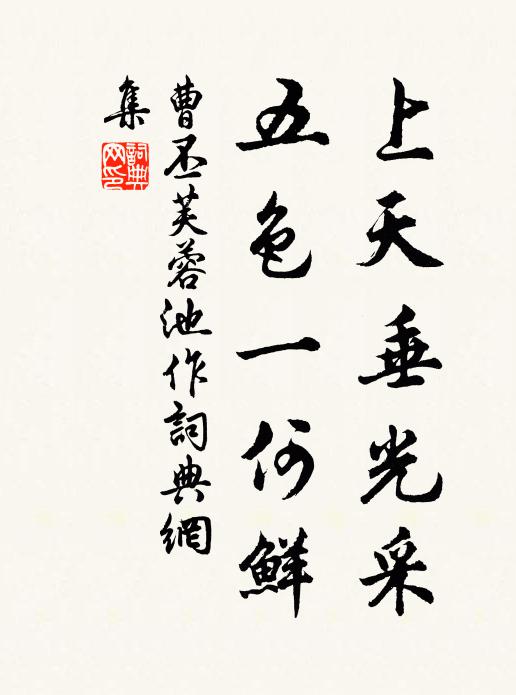 上天垂光采
五色一何鮮
曹丕芙蓉池作詞典網
集
詞典
网印